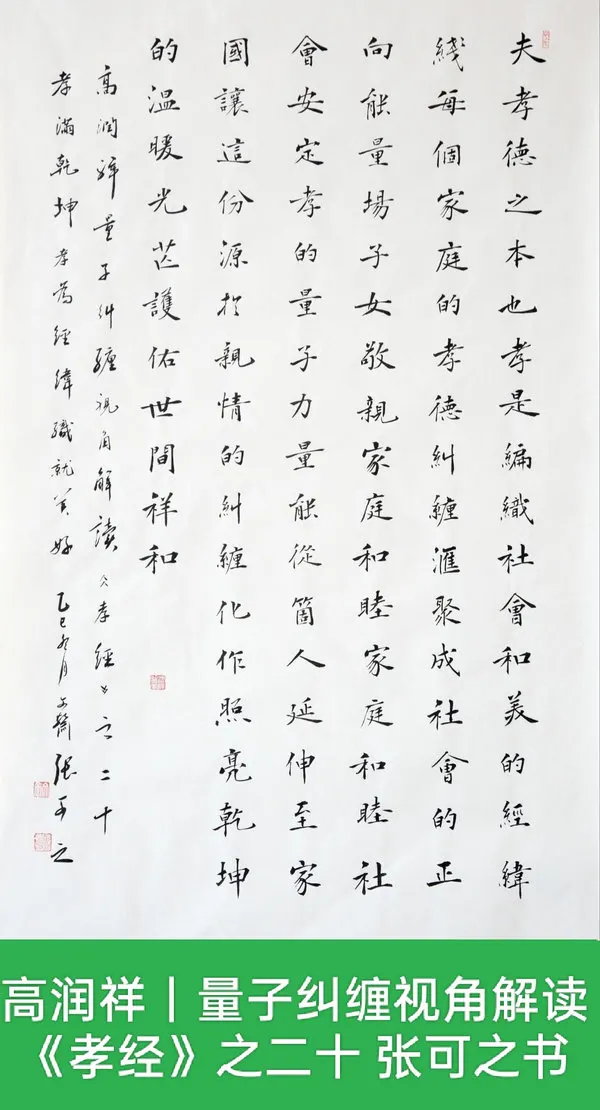 夫孝德之本也孝是編織社會和美的經緯
綫每個家庭的孝德糾纏滙聚成社會的正
向能量場子女敬親家庭和睦家庭和睦社
會安定孝的量子力量能從箇人延伸至家
國讓這份源於親情的糾纏化作照亮乾坤
的温暖光芒護佑世間祥和
高潤祥量子糾纏視角解讀《孝經》之二十
孝滿乾坤孝為經緯織就美好 乙巳 月 張可之
高润祥丨量子纠缠视角解读
《孝经》之二十 张可之书